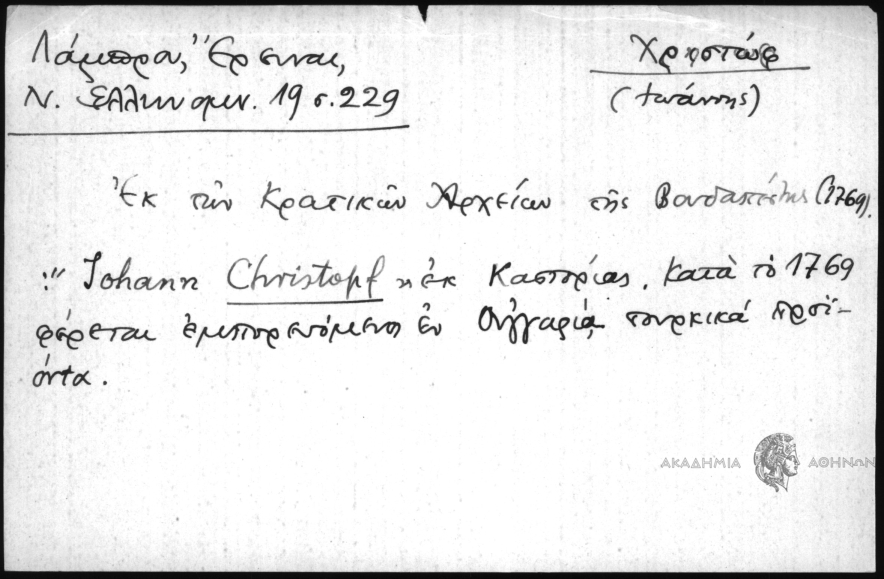 Λάμπρου, Ἔρευναι,
Ν. Ἑλληνομν. 19 σ. 229
Χρηστώφ
(Ἰωάννης)
Ἐκ τῶν Κρατικῶν Ἀρχείων τῆς Βουδαπέστης (1769).
:" Johann Christopf " ἐκ Καστορίας. Κατὰ τὸ 1769
φέρεται ἐμπορευόμενος ἐν Οὑγγαρίᾳ τουρκικά προϊ-
όντα.
ΑΚΑΔΗΜΙΑ ΑΘΗΝΩΝ